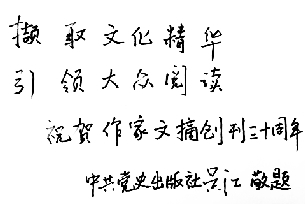 撷取文化精华
引领大众阅读
祝贺作家文摘创刊二十周年
中共党史出版社吴江敬题